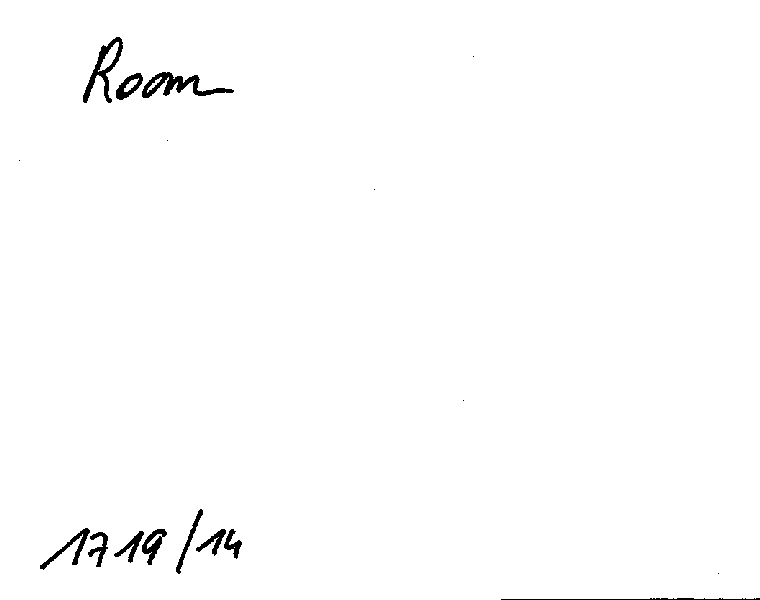 Room
1719/14